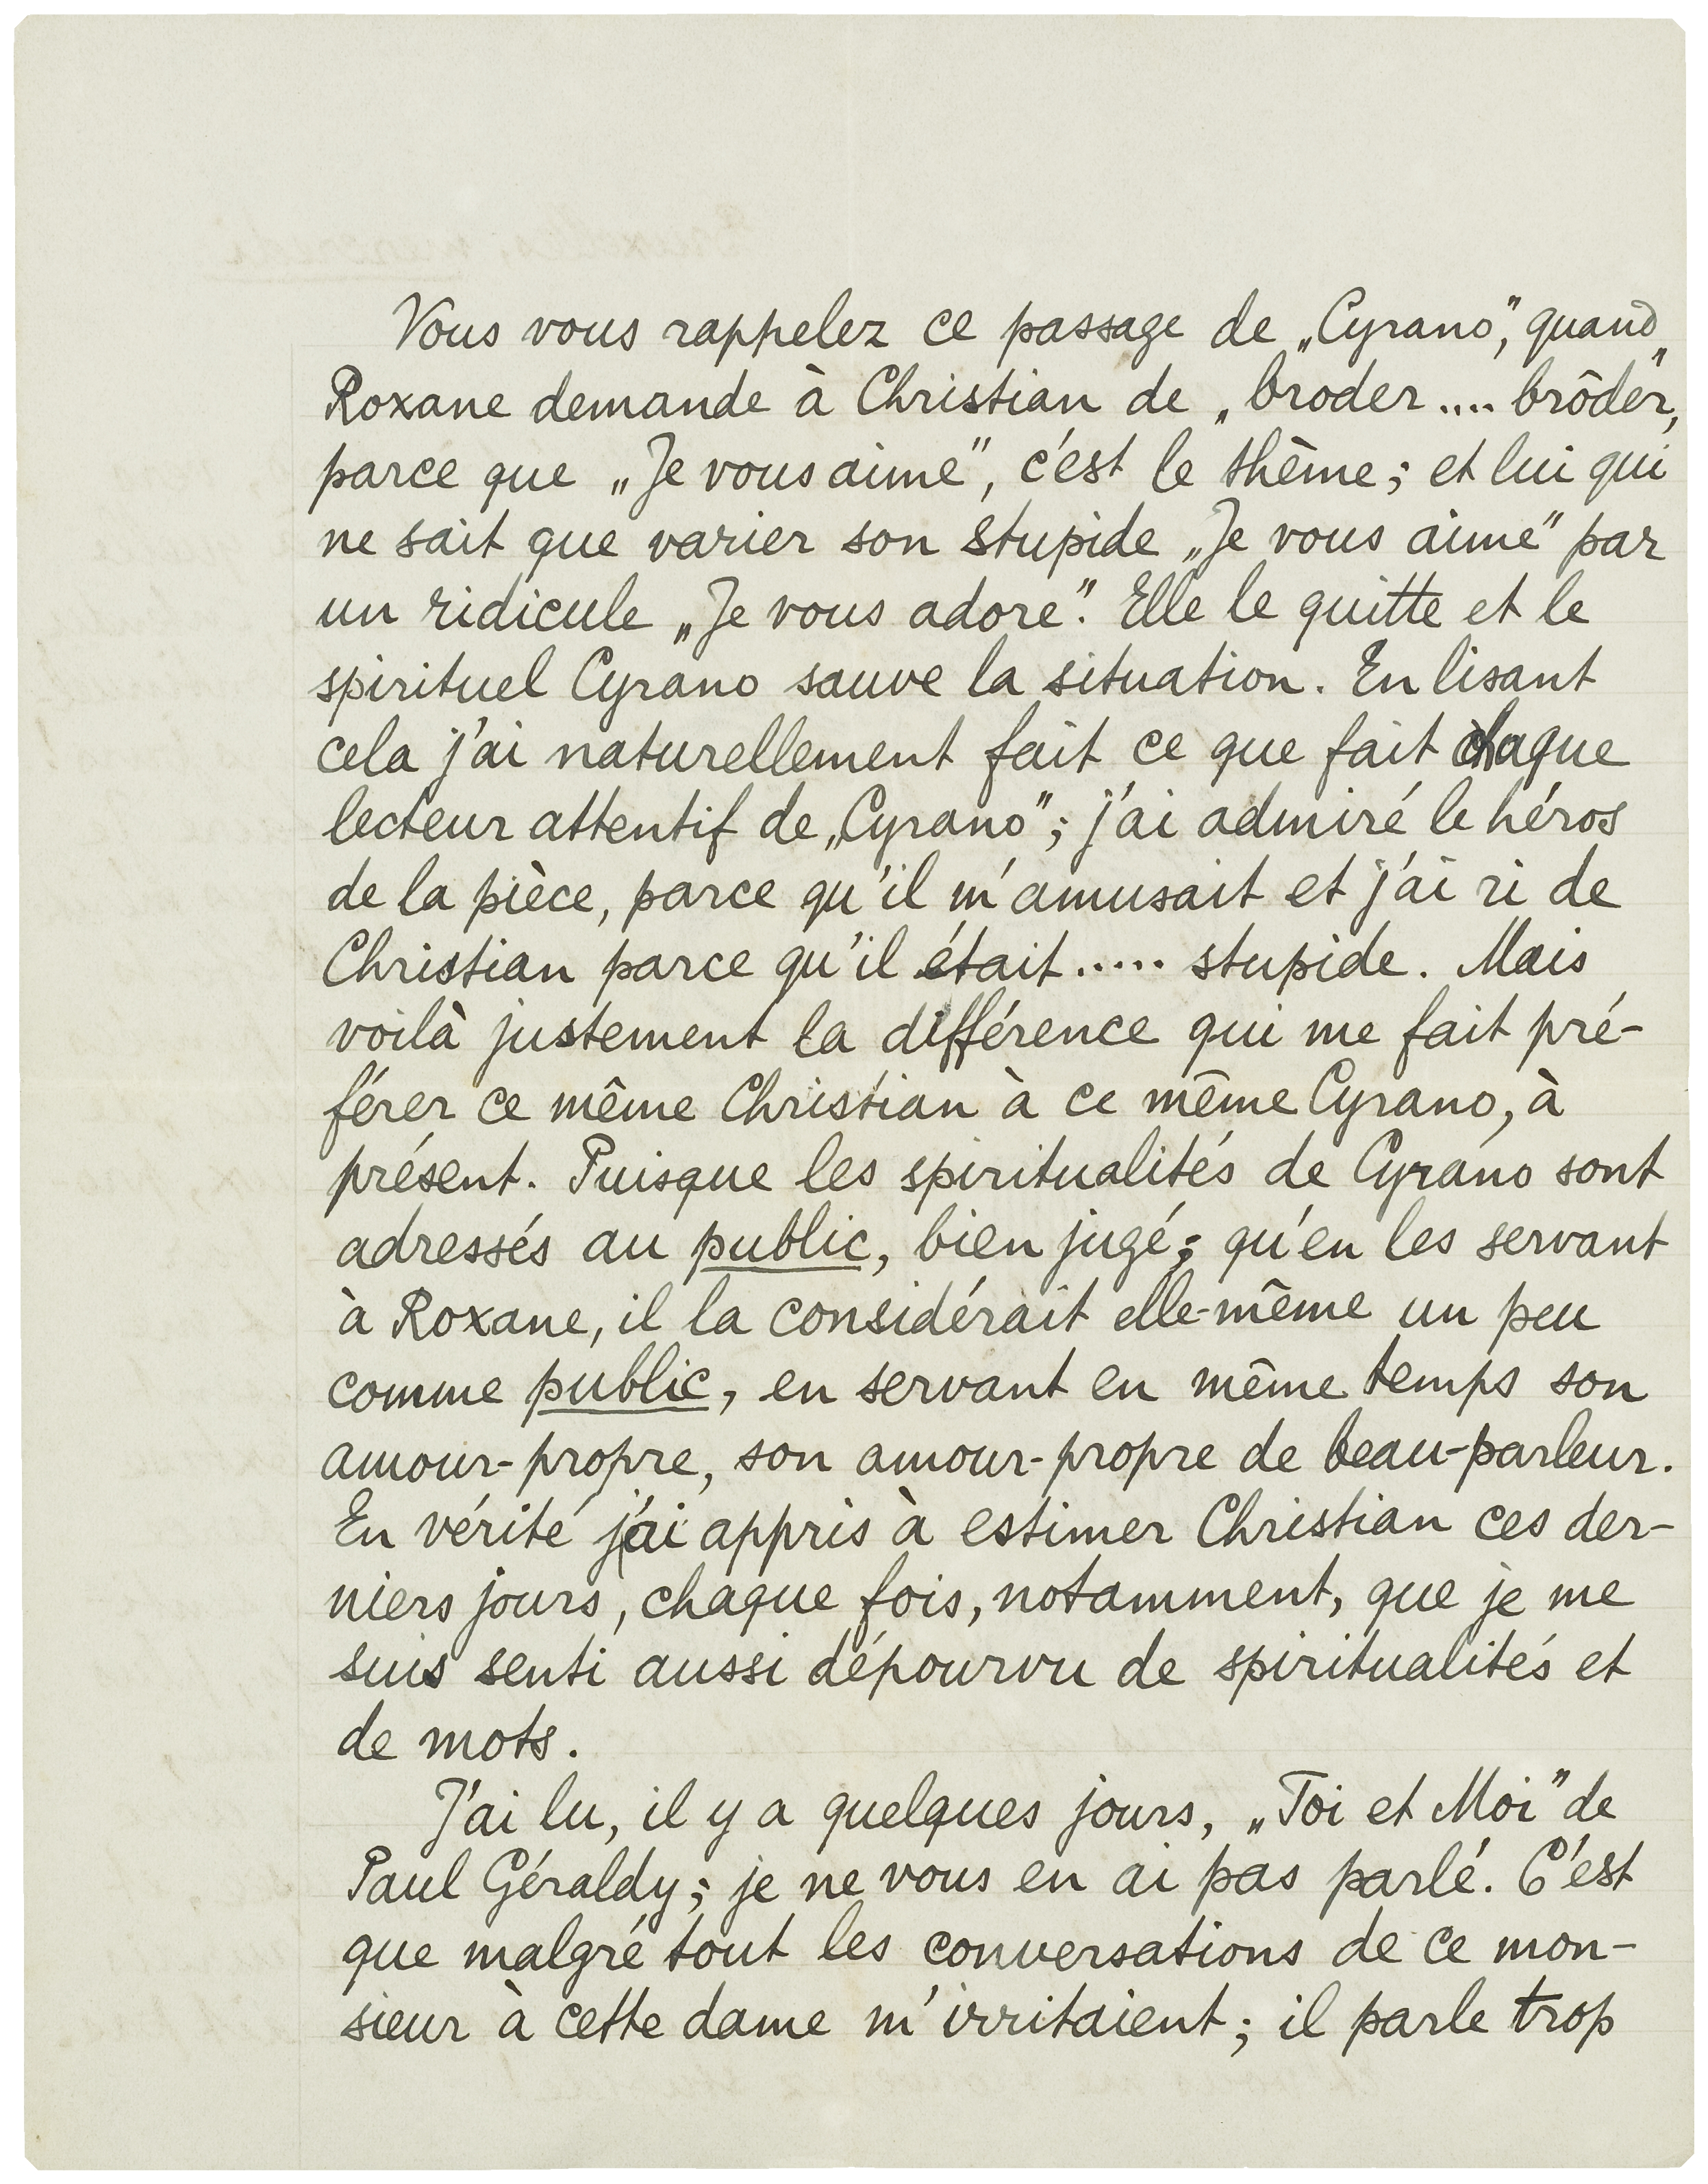 Vous vous rappelez ce passage de „Cyrano”, quand
Roxane demande à Christian de „broder .... brôder”,
parce que „Je vous aime”, c'est le thème; et lui qui
ne sait que varier son stupide „Je vous aime” par
un ridicule „Je vous adore”. Elle le quitte et le
spirituel Cyrano sauve la situation. En lisant
cela j'ai naturellement fait ce que fait chaque
lecteur attentif de „Cyrano”; j'ai admiré le héros
de la pièce, parce qu'il m'amusait et j'ai ri de
Christian parce qu'il était ..... stupide. Mais
voilà justement la différence qui me fait pré-
férer ce même Christian à ce même Cyrano, à
présent. Puisque les spiritualités de Cyrano sont
adressés au public, bien jugé; qu'en les servant
à Roxane, il la considérait elle-même un peu
comme public, en servant en même temps son
amour-propre, son amour-propre de beau-parleur.
En vérité j'ai appris à estimer Christian ces der-
niers jours, chaque fois, notamment, que je me
suis senti aussi dépourvu de spiritualités et
de mots.
J'ai lu, il y a quelques jours, „Toi et Moi” de
Paul Géraldy; je ne vous en ai pas parlé. C'est
que malgré tout les conversations de ce mon-
sieur à cette dame m'irritaient; il parle trop